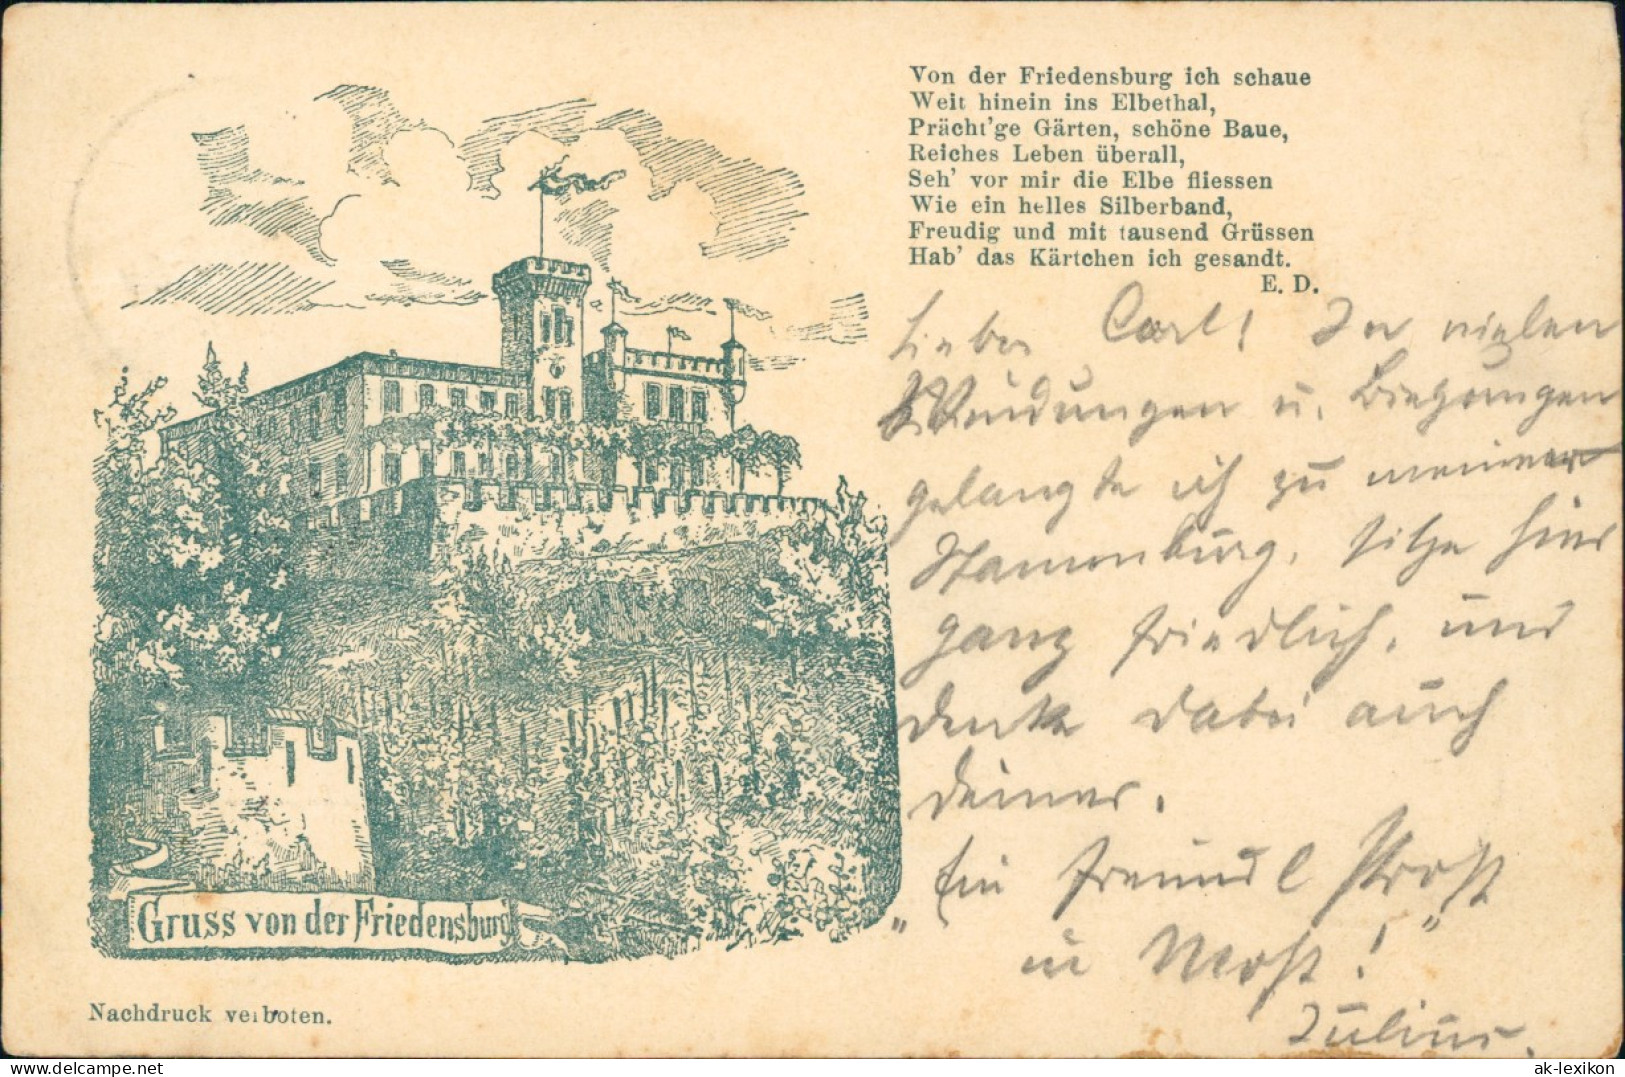 Von der Friedensburg ich schaue
Weit hinein ins Elbethal,
Prächt'ge Gärten, schöne Baue,
Reiches Leben überall,
Seh' vor mir die Elbe fliessen
Wie ein helles Silberband,
Freudig und mit tausend Grüssen
Hab' das Kärtchen ich gesandt.
E. D.
Lieber Carl! In vielen
Windungen u. Biegungen
gelangte ich zu meiner
Stammburg, sitze hier
ganz friedlich, und
denke dabei auch
deiner.
"Ein freundl Prost
in Most!"
Julius.
Gruss von der Friedensburg
Nachdruck verboten.
© by ak-lexikon.de
ak-lexikon